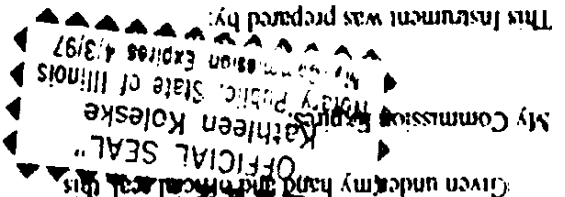 Given under my hand and official seal, this
"OFFICIAL SEAL"
Kathleen Koleske
Notary Public, State of Illinois
My Commission Expires 4/3/97
My Commission Expires
This Instrument was prepared by: